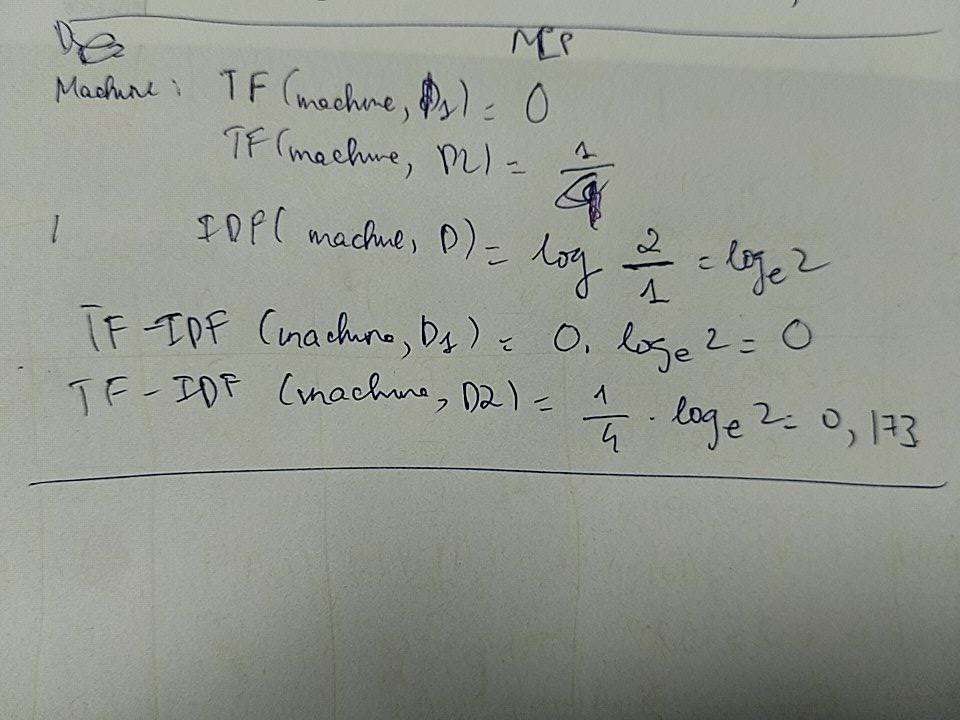 Machine: TF (machine, D1) = 0
TF (machine, D2) = 1/4
IDF( machine, D) = log 2/1 = loge 2
TF-IDF (machine, D1) = 0. loge 2 = 0
TF-IDF (machine, D2) = 1/4 . loge 2 = 0,173